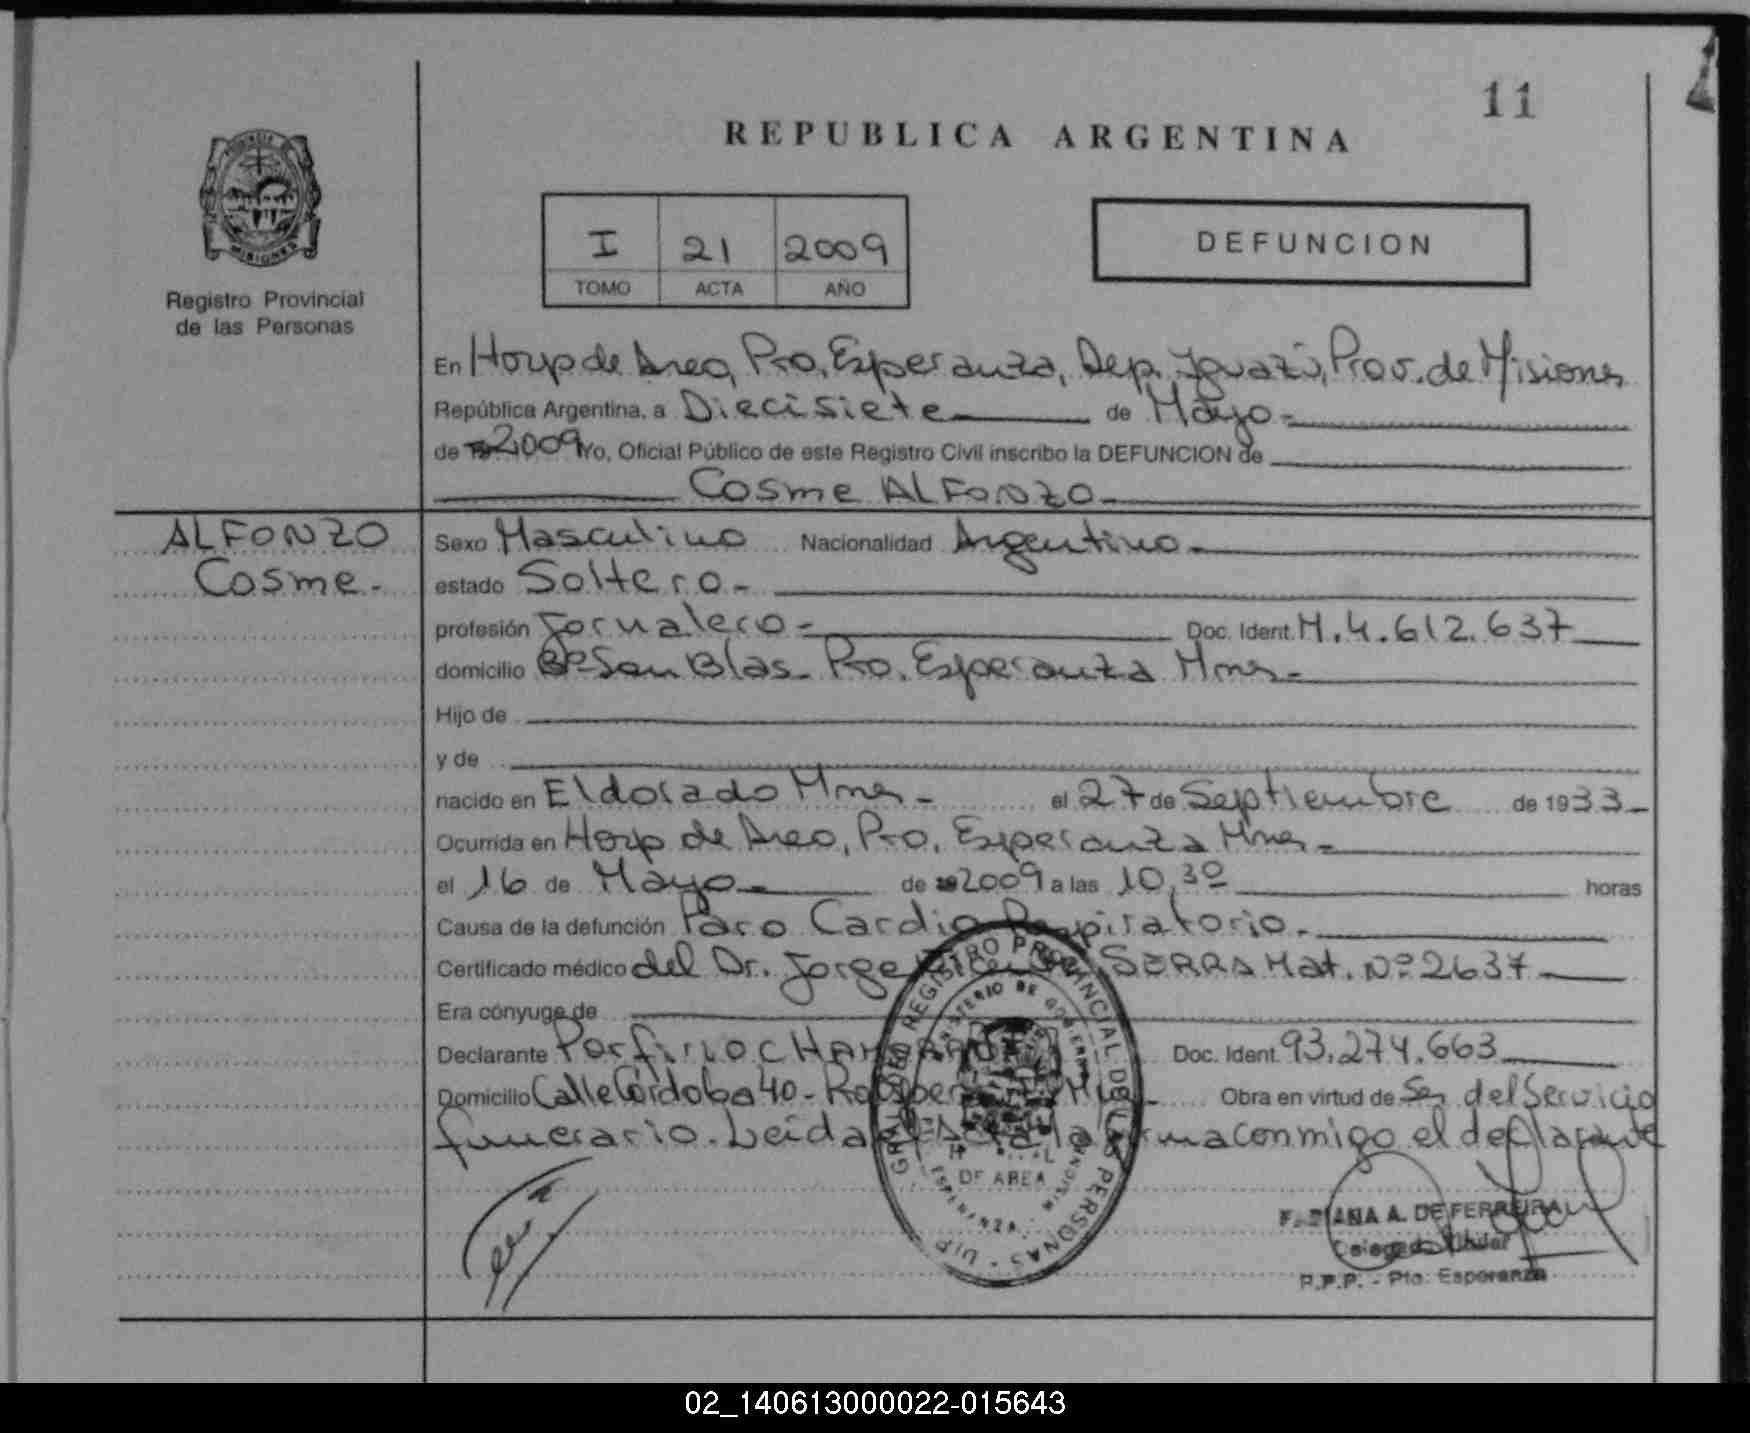 11
REPUBLICA ARGENTINA
I 21 2009
TOMO ACTA AÑO
DEFUNCION
Registro Provincial
de las Personas
En Hosp de Area, Pto. Esperanza, Dep. Iguazú, Prov. de Misiones
República Argentina, a Diecisiete de Mayo
de 2009 Yo, Oficial Público de este Registro Civil inscribo la DEFUNCION de
Cosme ALFONZO
ALFONZO
Cosme.-
Sexo Masculino Nacionalidad Argentino
estado Soltero
profesión Jornalero Doc. Ident. M.4.612.637
domicilio Bº San Blas. Pto. Esperanza Mnes
Hijo de
y de
nacido en Eldorado Mnes el 27 de Septiembre de 1933
Ocurrida en Hosp de Area, Pto. Esperanza Mnes
el 16 de Mayo de 2009 a las 10,30 horas
Causa de la defunción Paro Cardio Respiratorio.
Certificado médico del Dr. Jorge SERRA Mat. Nº 2637
Era cónyuge de
Declarante Porfirio Doc. Ident. 93.274.663
Domicilio Calle Córdoba 40 - Obra en virtud de Ser del Servicio
funerario. Leida firma conmigo el declarante
GRAL. DEL REGISTRO PROVINCIAL DE LAS PERSONAS
MINISTERIO DE GOBIERNO
DE AREA
ESPERANZA - MISIONES
FABIANA A. DE FERREIRA
Delegada Titular
R.P.P. - Pto. Esperanza
02_140613000022-015643